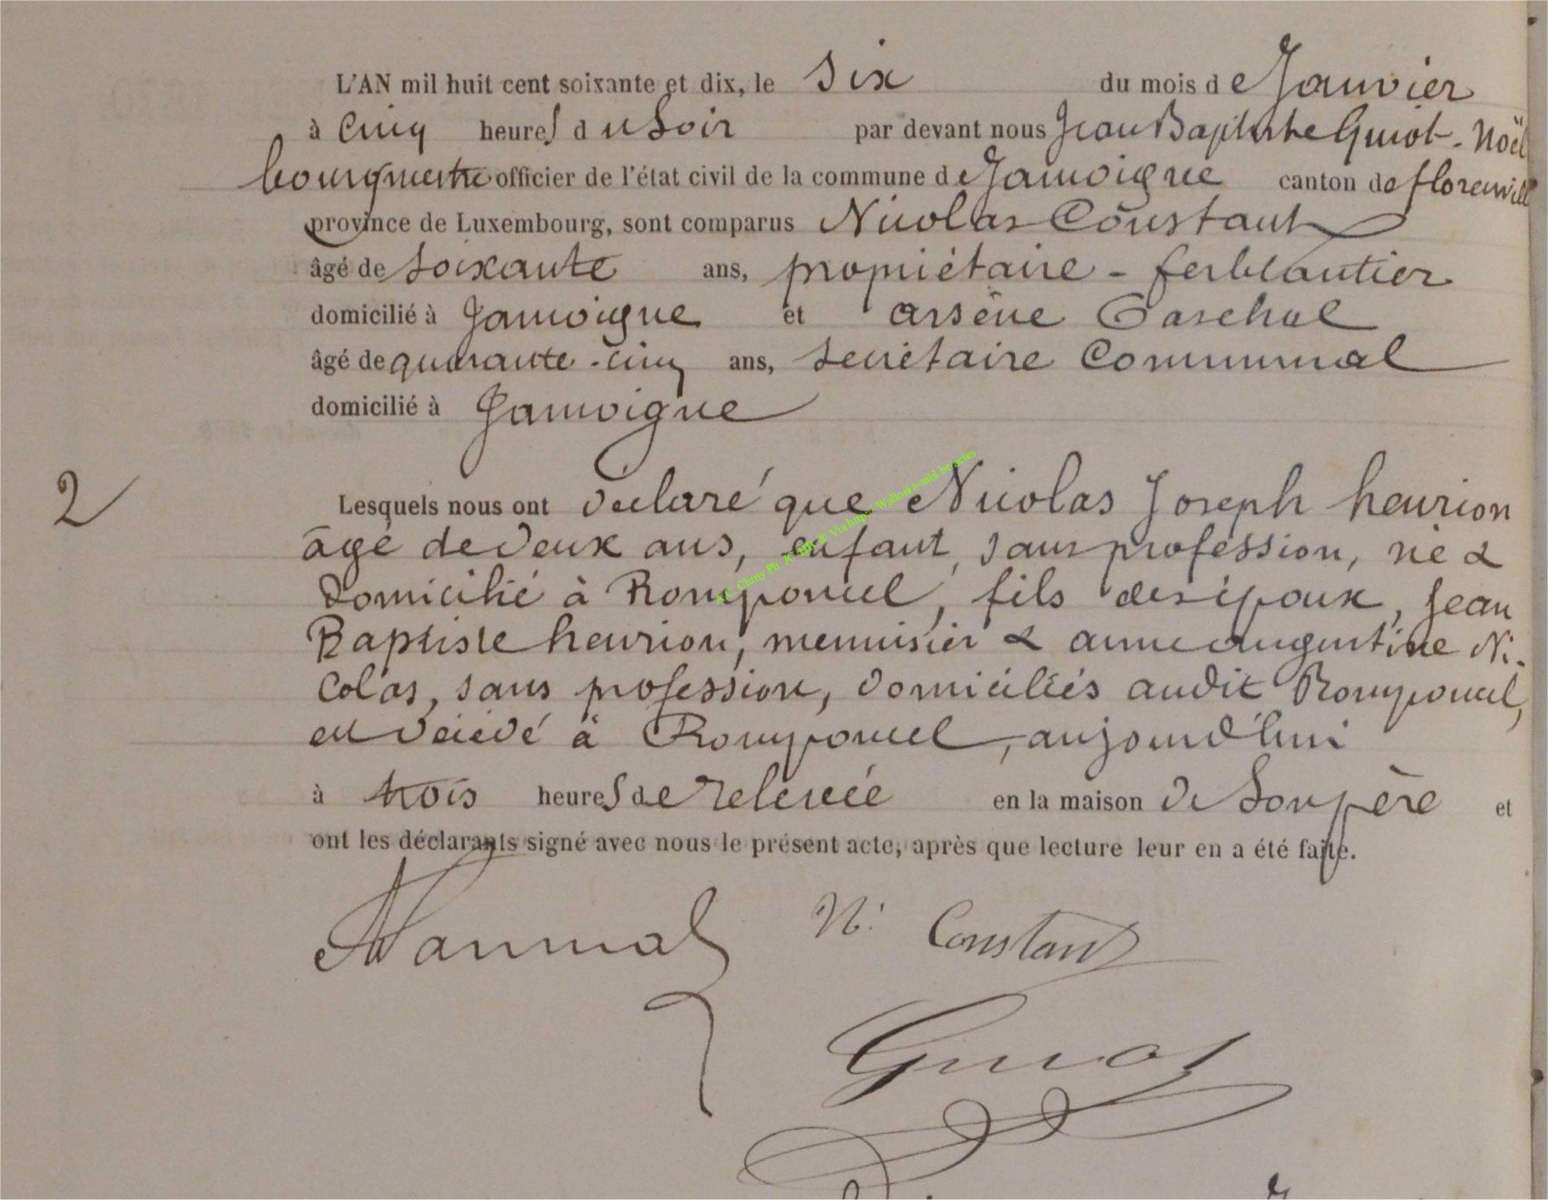 L'AN mil huit cent soixante et dix, le six du mois de Janvier
à cinq heures du Soir par devant nous Jean Baptiste Guiot-Noël
bourgmestre officier de l'état civil de la commune de Jamoigne canton de florenville
province de Luxembourg, sont comparus Nicolas Constant
âgé de soixante ans, propriétaire - ferblantier
domicilié à Jamoigne et arsène
âgé de quarante-cinq ans, secrétaire Communal
domicilié à Jamoigne
2
Lesquels nous ont déclaré que Nicolas Joseph henrion
âgé de deux ans, enfant, sans profession, né &
domicilié à Romponcel, fils des époux, Jean
Baptiste henrion, menuisier & anne augustine Ni-
colas, sans profession, domiciliés audit Romponcel,
est décédé à Romponcel, aujourd'hui
à trois heures de relevée en la maison de Son père et
ont les déclarants signé avec nous le présent acte, après que lecture leur en a été faite.
N. Constant
Guiot